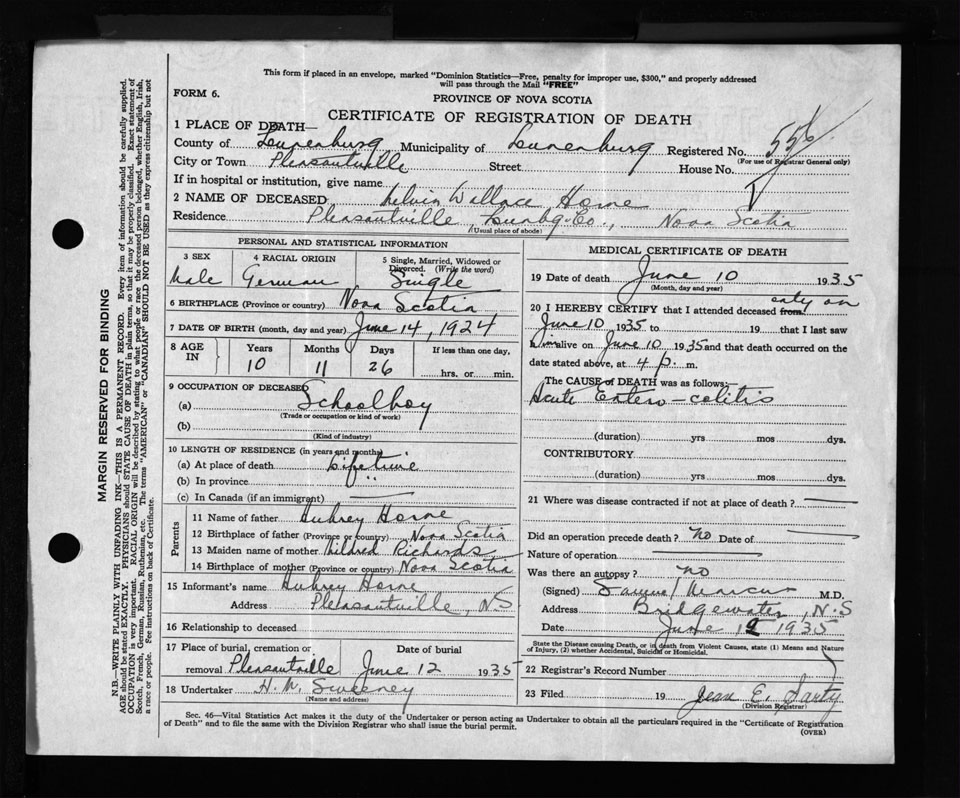 This form if placed in an envelope, marked "Dominion Statistics—Free, penalty for improper use, $300," and properly addressed
will pass through the Mail "FREE"
FORM 6.
PROVINCE OF NOVA SCOTIA
CERTIFICATE OF REGISTRATION OF DEATH
1 PLACE OF DEATH—
County of Lunenburg Municipality of Lunenburg Registered No. 556
(For use of Registrar General only)
City or Town Pleasantville Street House No.
If in hospital or institution, give name
2 NAME OF DECEASED Melvin Wallace Horne
Residence Pleasantville Lunbg. Co., Nova Scotia
(Usual place of abode)
PERSONAL AND STATISTICAL INFORMATION
3 SEX 4 RACIAL ORIGIN 5 Single, Married, Widowed or Divorced. (Write the word)
Male German Single
6 BIRTHPLACE (Province or country) Nova Scotia
7 DATE OF BIRTH (month, day and year) June 14, 1924
8 AGE IN Years Months Days If less than one day,
10 11 26 hrs. or min.
9 OCCUPATION OF DECEASED
(a) Schoolboy
(Trade or occupation or kind of work)
(b)
(Kind of industry)
10 LENGTH OF RESIDENCE (in years and months)
(a) At place of death Lifetime
(b) In province "
(c) In Canada (if an immigrant)
Parents
11 Name of father Aubrey Horne
12 Birthplace of father (Province or country) Nova Scotia
13 Maiden name of mother Mildred Richards
14 Birthplace of mother (Province or country) Nova Scotia
15 Informant's name Aubrey Horne
Address Pleasantville, N.S
16 Relationship to deceased
17 Place of burial, cremation or removal Date of burial
Pleasantville June 12 1935
18 Undertaker H. M. Sweeney
(Name and address)
MEDICAL CERTIFICATE OF DEATH
19 Date of death June 10 1935
(Month, day and year)
20 I HEREBY CERTIFY that I attended deceased from only on
June 10 1935 to 19 that I last saw
him alive on June 10 1935 and that death occurred on the
date stated above, at 4 p. m.
The CAUSE of DEATH was as follows:—
Acute Entero-colitis
(duration) yrs mos dys.
CONTRIBUTORY
(duration) yrs mos dys.
21 Where was disease contracted if not at place of death?
Did an operation precede death? no Date of
Nature of operation
Was there an autopsy? no
(Signed) Samuel Marcus M.D.
Address Bridgewater, N.S
Date June 12 1935
State the Disease causing Death, or in death from Violent Causes, state (1) Means and Nature
of Injury, (2) whether Accidental, Suicidal or Homicidal.
22 Registrar's Record Number
23 Filed 19 Jean E. Sarty
(Division Registrar)
Sec. 46—Vital Statistics Act makes it the duty of the Undertaker or person acting as Undertaker to obtain all the particulars required in the "Certificate of Registration
of Death" and to file the same with the Division Registrar who shall issue the burial permit.
(OVER)
MARGIN RESERVED FOR BINDING
N.B.—WRITE PLAINLY WITH UNFADING INK—THIS IS A PERMANENT RECORD. Every item of information should be carefully supplied.
AGE should be stated EXACTLY. PHYSICIANS should STATE CAUSE OF DEATH in plain terms, so that it may be properly classified. Exact statement of
OCCUPATION is very important. RACIAL ORIGIN will be described by stating to what people or race the deceased person belonged, whether English, Irish,
Scotch, French, German, Russian, Ruthenian, etc. The terms "AMERICAN" or "CANADIAN" SHOULD NOT BE USED as they express citizenship but not
a race or people. See instructions on back of Certificate.